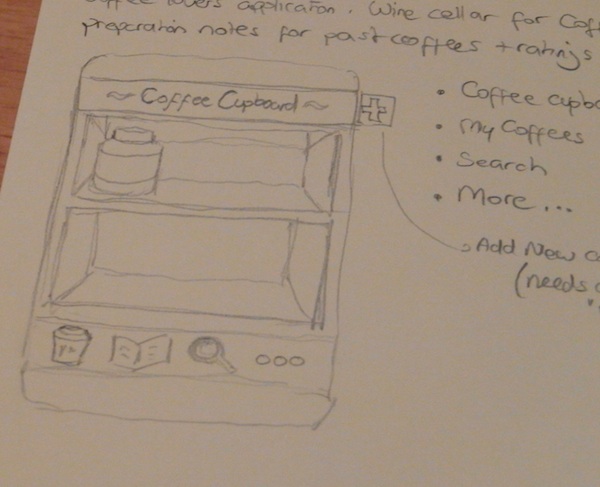 coffee lovers application. Wine cellar for
preparation notes for past coffees + ratings
~ Coffee Cupboard ~
• Coffee
• My Coffees
• Search
• More...
Add New
(needs